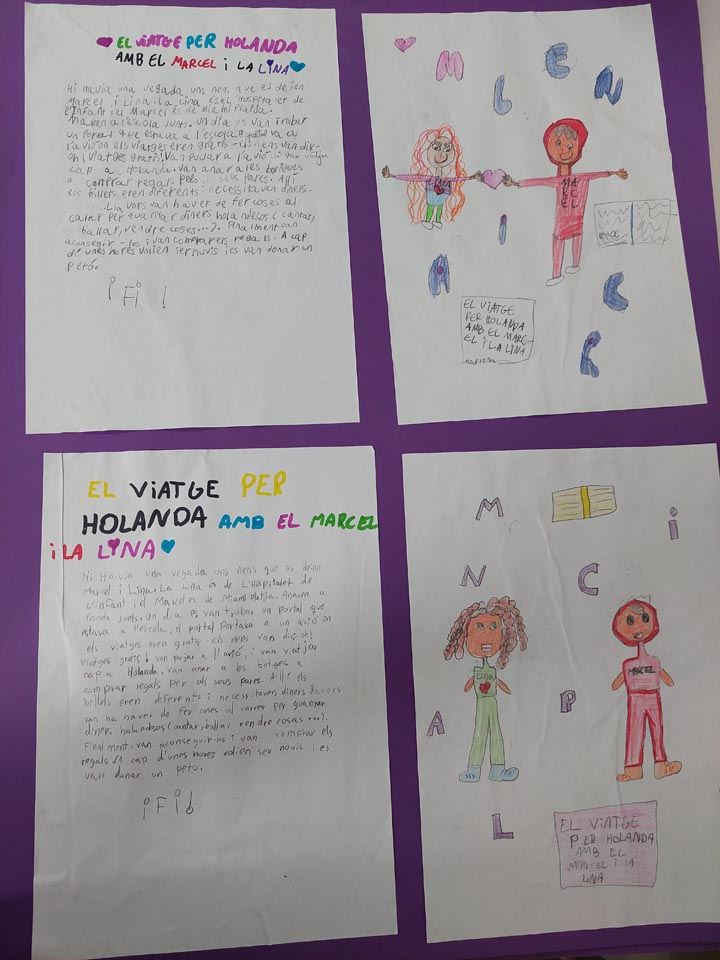 EL ViATGE PER HOLANDA
AMB EL MARCEL i LA LiNA
Hi Havia una vegada uns nens que es deien
Marcel i Lina. La Lina és de L'Hospitalet de
l'infant i el Marcel és de Miami Platja.
Anaven a l'escola junts. Un dia es van trobar
un Portal que estava a l'escola. El portal va a
l'avió on els viatges eren gratis els nens van dir
oh! viatges gratis! Van pujar a l'avió i van viatjar
cap a Holanda. van anar a les botigues
a comprar regals pels seus pares. Allí
els billets eren diferents i necessitaven diners.
Llavors van haver de fer coses al
carrer per guanyar diners holandesos (cantar,
ballar, vendre coses...). Finalment van
aconseguir-los i van comprar els regals. A cap
d'unes hores volien ser nuvis i es van donar un
petó.
¡Fi!
M L E N
LINA
MARCEL
A i C C
EL ViATGE
PER HOLANDA
AMB EL MARC-
EL i LA LiNA
EL ViATGE PER
HOLANDA AMB EL MARCEL
i LA LiNA
Hi Havia una vegada uns nens que es deien
Marcel i Lina. La Lina és de L'Hospitalet de
L'infant i el Marcel es de Miami platja. Anaven a
l'escola junts. Un dia es van trobar un portal que
estava a l'escola, el portal Portava a un avió on
els viatges eren gratis els nens van dir: oh!
viatges gratis! van pujar a l'avió, i van viatjar
cap a Holanda. van anar a les botiges a
comprar regals per als seus pares. Allí els
billets eren diferents i necessitaven diners llavors
van haver de fer coses al carrer per guanyar
diners holandesos (cantar, ballar vendre cosas ...).
Finalment van aconseguir-os i van comprar els
regals A cap d'unes hores volien ser novis i es
van donar un peto.
¡Fi!
M i
N C
LiNA
MARCEL
A P
L
EL ViATGE
PER HOLANDA
AMB EL
MARCEL i LA
LiNA